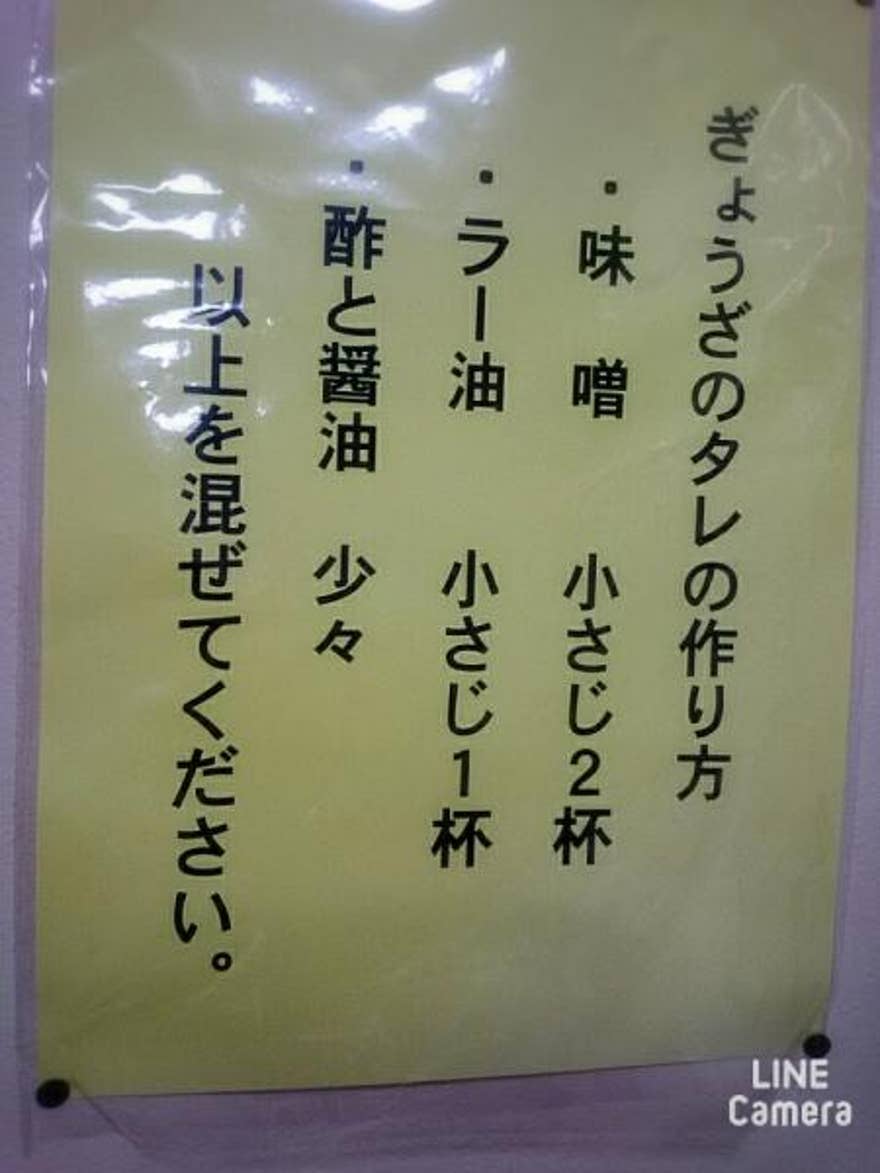 ぎょうざのタレの作り方
・味　噌　　小さじ２杯
・ラー油　　小さじ１杯
・酢と醤油　少々
以上を混ぜてください。
LINE
Camera